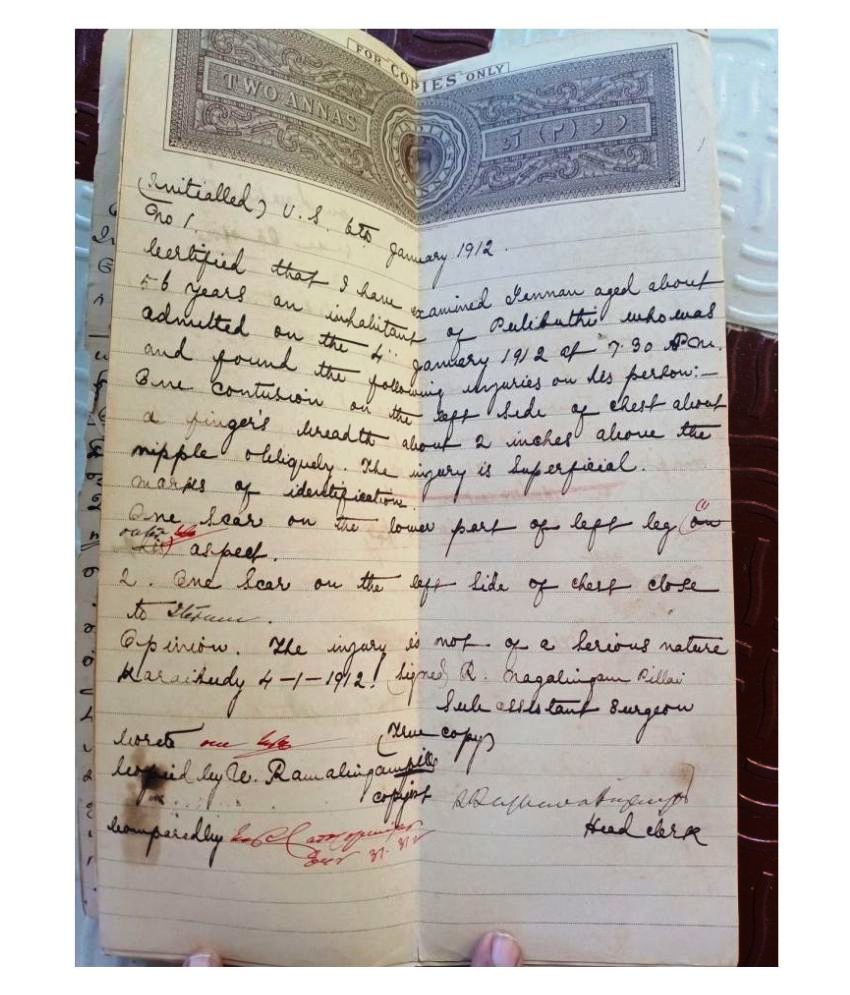 FOR COPIES ONLY
TWO ANNAS
(Initialled) V. S. 6th January 1912.
No 1.
Certified that I have examined Kennan aged about
56 years an inhabitant of Pulikuthi who was
admitted on the 4th January 1912 at 7.30 P.m.
and found the following injuries on his person:-
One contusion on the left side of chest about
a finger's breadth about 2 inches above the
nipple obliquely. The injury is superficial.
marks of identification.
One scar on the lower part of left leg (on
aspect.
2. One scar on the left side of chest close
to Sternum.
Opinion. The injury is not of a serious nature
Karaikudy 4-1-1912. (signed) R. Nagalingam Pillai
Sub assistant Surgeon
(True copy)
Copied by V. Ramalingam pillai
copyist
Head clerk
Compared by